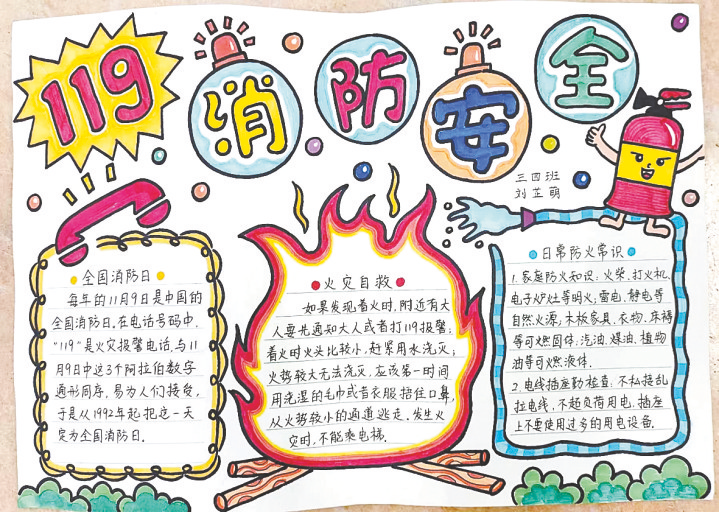 119消防安全
三四班
刘芷萌
全国消防日
每年的11月9日是中国的
全国消防日,在电话号码中,
"119"是火灾报警电话,与11
月9日中这3个阿拉伯数字
通形同序,易为人们接受,
于是从1992年起,把这一天
定为全国消防日.
火灾自救
如果发现着火时,附近有大
人要先通知大人或者打119报警;
着火时火头比较小,赶紧用水浇灭;
火势较大无法浇灭,应该第一时间
用浇湿的毛巾或者衣服捂住口鼻,
从火势较小的通道逃走.发生火
灾时,不能乘电梯.
日常防火常识
1.家庭防火知识:火柴、打火机、
电子炉灶等明火;雷电、静电等
自然火源;木板家具、衣物、床褥
等可燃固体;汽油、煤油、植物
油等可燃液体.
2.电线插座勤检查:不私接乱
拉电线,不超负荷用电,插座
上不要使用过多的用电设备.